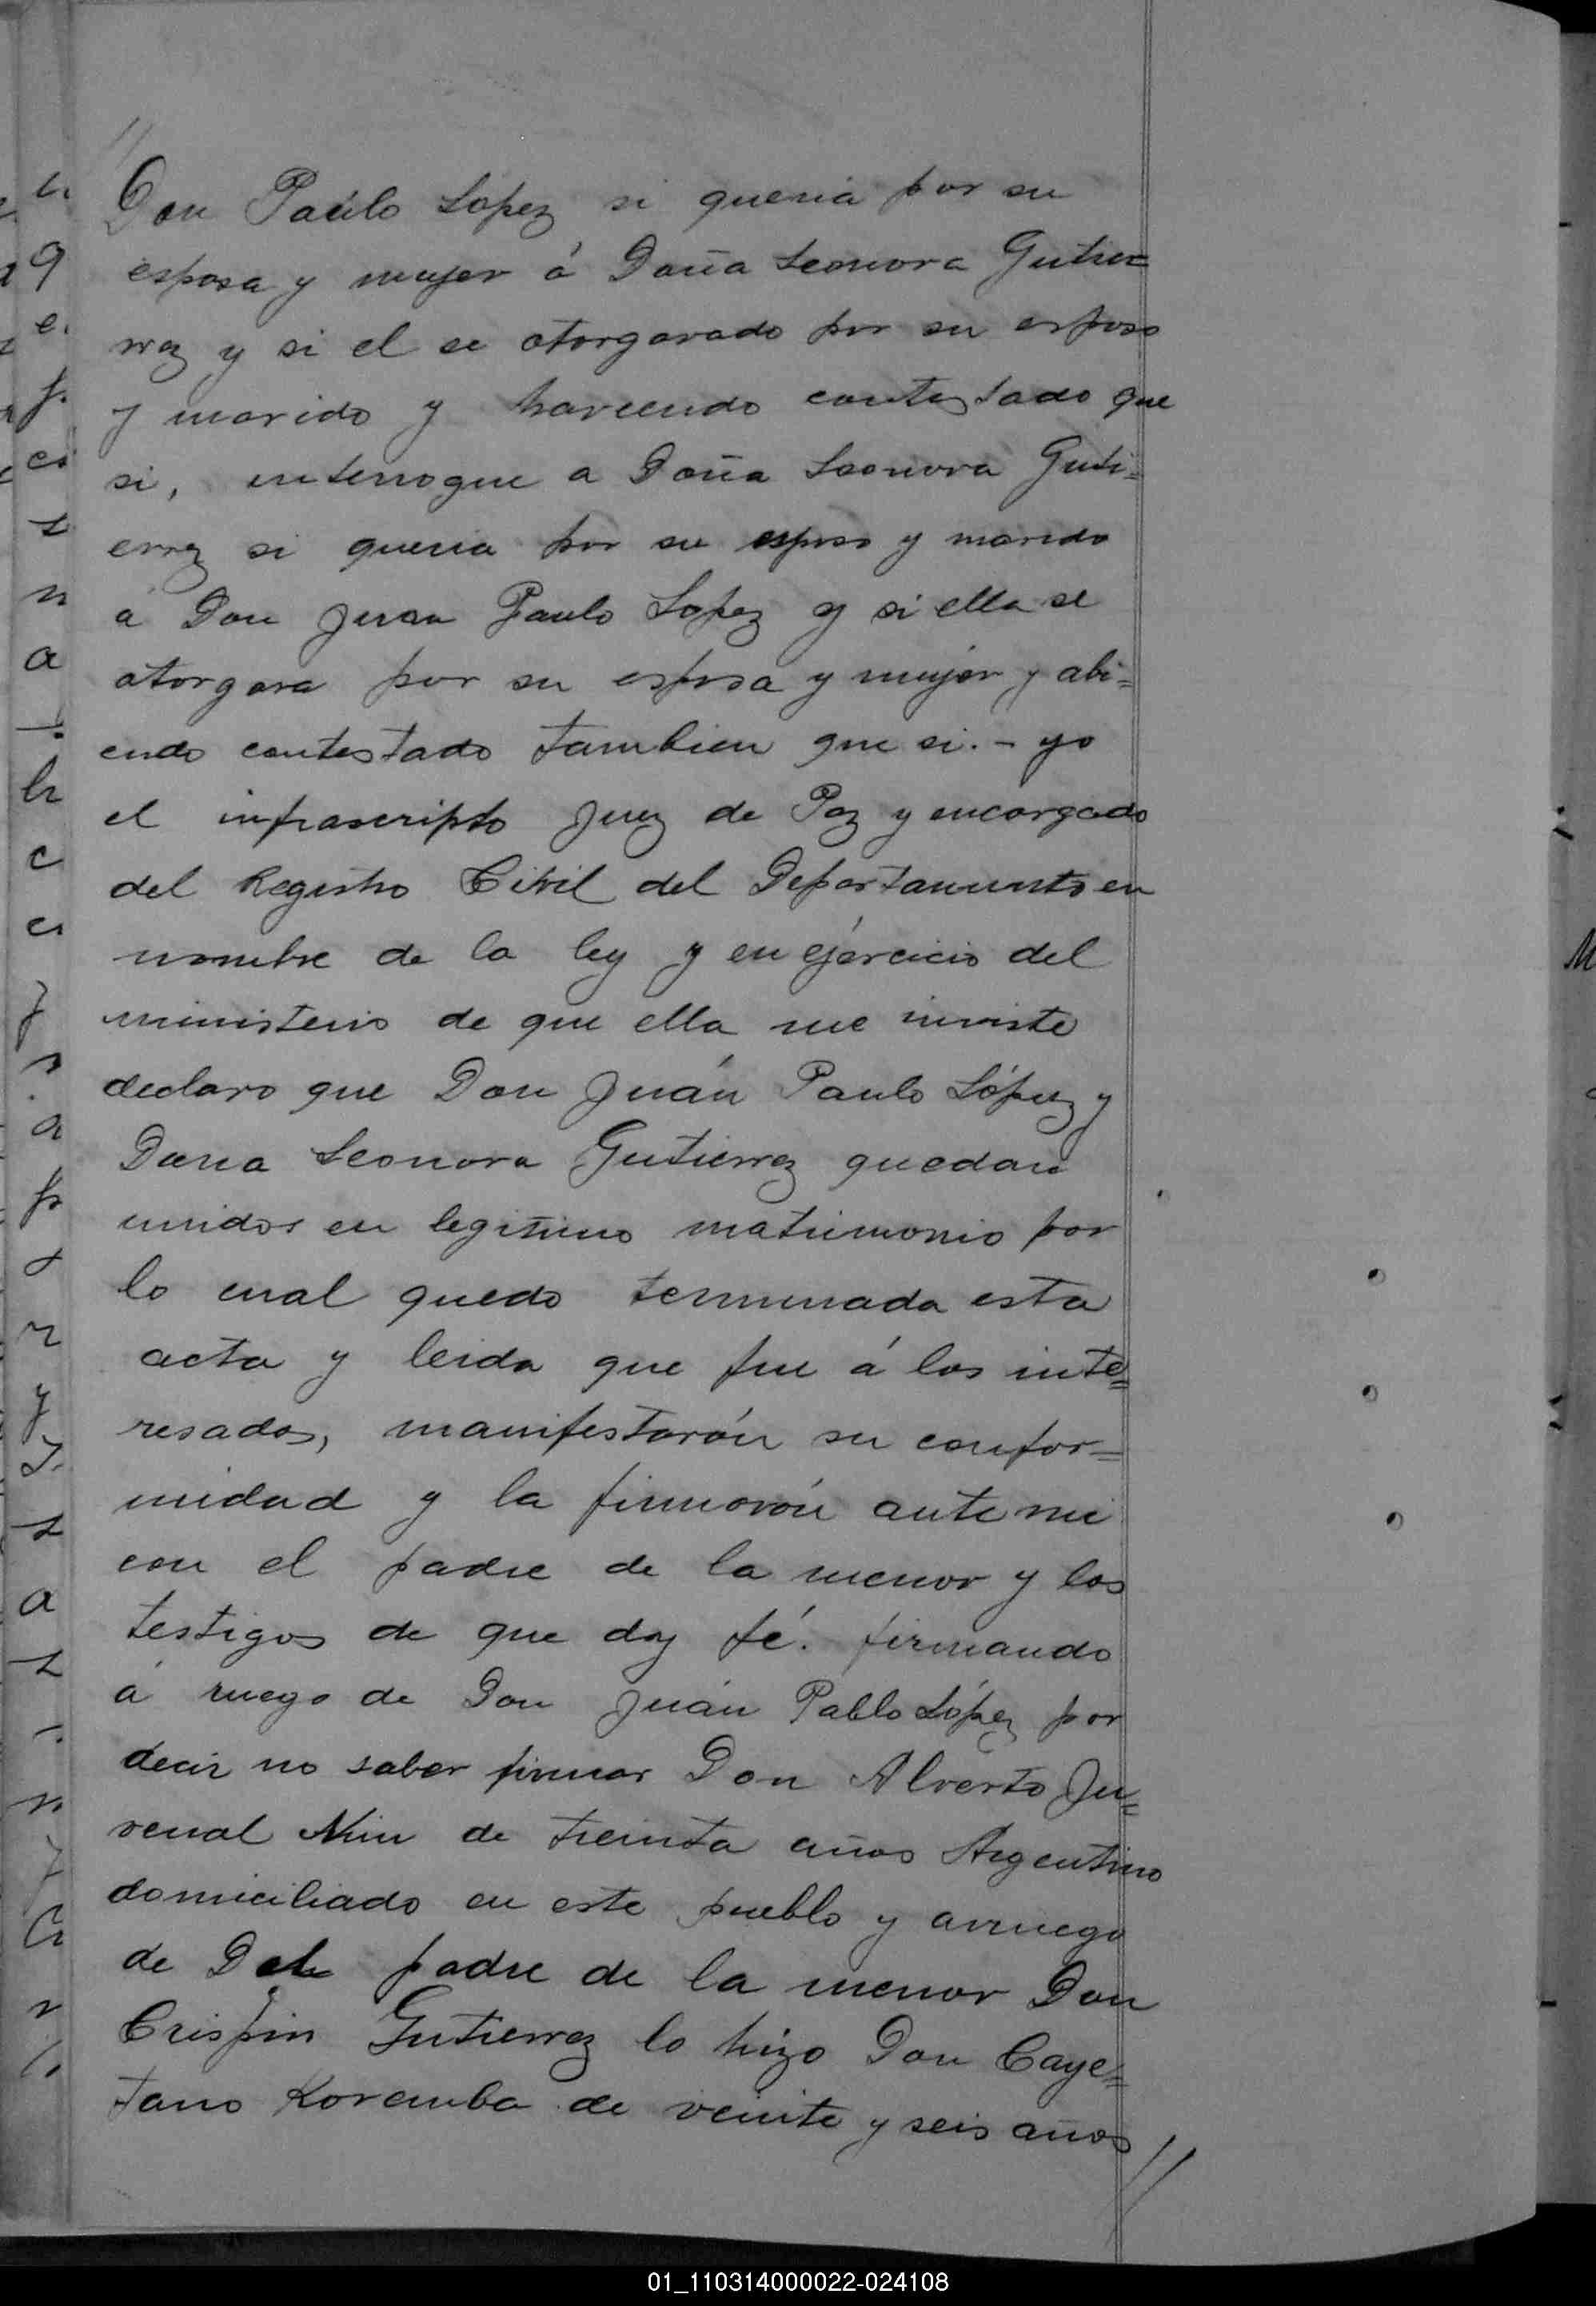 //
Don Paúlo Lopez si queria por su
esposa y mujer á Doña Leonora Gutier=
rrez y si el se otorgavado por su esposo
y marido y haviendo contestado que
si, interrogue a Doña Leonora Guti=
errez si queria por su esposo y marido
á Don Juan Paulo Lopez y si ella se
otorgara por su esposa y mujer y abi=
endo contestado tambien que si. - yo
el infrascripto Juez de Paz y encargado
del Registro Civil del Departamento en
nombre de la ley y en ejercicio del
ministerio de que ella me inviste
declaro que Don Juán Paulo López y
Doña Leonora Gutierrez quedan
unidos en legitimo matrimonio por
lo cual quedo terminada esta
acta y leida que fue á los inte=
resados, manifestarón su confor=
midad y la firmarón ante mi
con el padre de la menor y los
testigos de que doy fé. firmando
á ruego de Don Juán Pablo López por
decir no saber firmar Don Alverto Ju=
venal Nin de treinta años Argentino
domiciliado en este pueblo y arruego
de Del padre de la menor Don
Crispin Gutierrez lo hizo Don Caye=
tano Koremba de veinte y seis años
//
01_110314000022-024108